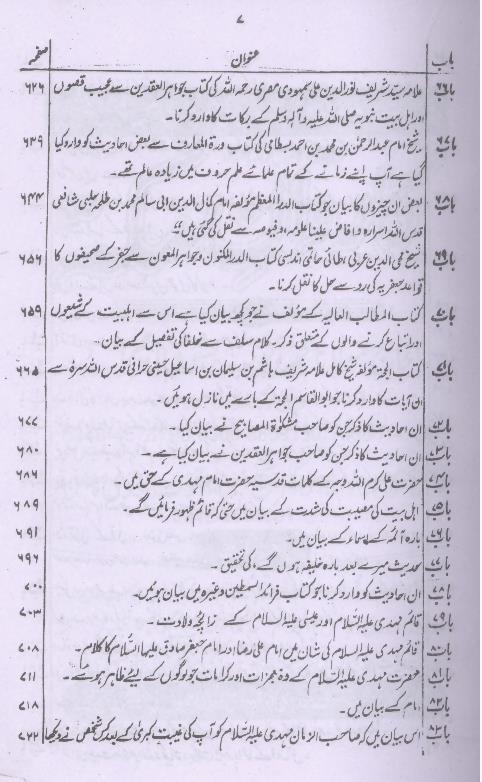 ۷
باب عنوان صفحہ
باب۶۶ علامہ سید شریف نور الدین علی سمہودی مصری رحمہ اللہ کی کتاب جواہر العقدین سے عجیب قصوں ۶۲۶
اور اہل بیت نبویہ صلی اللہ علیہ وآلہ وسلم کے برکات کا وارد کرنا۔
باب۶۷ شیخ امام عبدالرحمٰن بن محمد بن احمد بسطامی کی کتاب درۃ المعارف سے بعض احادیث کو وارد کیا ۶۳۹
گیا ہے آپ اپنے زمانے کے تمام علمائے علم حروف میں زیادہ عالم تھے۔
باب۶۸ بعض ان چیزوں کا بیان جو کتاب الدر المنظم مؤلفہ امام کمال الدین ابی سالم محمد بن طلحہ حلبی شافعی ۶۴۴
قدس اللہ اسرارہ وافاض علینا علومہ وفیوضہ سے نقل کی گئی ہیں۔
باب۶۹ شیخ محی الدین عربی طائی حاتمی اندلسی کتاب الدر المکنون وجواہر المصون سے جفر کے صحیفوں کا ۶۵۶
قواعد جعفریہ کی رو سے حل کا نقل کرنا۔
باب۷۰ کتاب المطالب العالیہ کے مؤلف نے جو کچھ بیان کیا ہے اس سے اہلبیت کے شیعوں ۶۵۹
اور اتباع کرنے والوں کے متعلق ذکر۔ کلام سلف سے خلفا کی تفصیل کے بیان۔
باب۷۱ کتاب الحجۃ مؤلفہ شیخ کامل علامہ شریف ہاشم بن سلیمان بن اسماعیل حسینی بحرانی قدس اللہ سرہ سے ۶۶۵
ان آیات کا وارد کرنا جو ابوالقاسم الحجۃ کے بارے میں نازل ہوئیں۔
باب۷۲ ان احادیث کا ذکر جن کو صاحب مشکوٰۃ المصابیح نے بیان کیا۔ ۶۷۷
باب۷۳ ان احادیث کا ذکر جن کو صاحب جواہر العقدین نے بیان کیا ہے۔ ۶۸۰
باب۷۴ حضرت علی کرم اللہ وجہہ کے کلمات قدسیہ حضرت امام مہدی کے حق میں۔ ۶۸۶
باب۷۵ اہل بیت کی مصیبت کی شدت کے بیان میں حتیٰ کہ قائم ظہور فرمائیں گے۔ ۶۸۹
باب۷۶ بارہ آئمہ کے اسماء کے بیان میں۔ ۶۹۱
باب۷۷ حدیث میرے بعد بارہ خلیفہ ہوں گے، کی تحقیق۔ ۶۹۶
باب۷۸ ان احادیث کو وارد کرنا جو کتاب فرائد السمطین وغیرہ میں بیان ہوئیں۔ ۷۰۰
باب۷۹ قائم مہدی علیہ السلام اور عیسیٰ علیہ السلام کے زائچہ ولادت۔ ۷۰۳
باب۸۰ قائم مہدی علیہ السلام کی شان میں امام علی رضا اور امام جعفر صادق علیہما السلام کا کلام۔ ۷۰۸
باب۸۱ حضرت مہدی علیہ السلام کے وہ معجزات اور کرامات جو لوگوں کے لیے ظاہر ہوئے۔ ۷۱۱
باب۸۲ امام کے بیان میں۔ ۷۱۸
باب۸۳ اس بیان میں کہ صاحب الزمان مہدی علیہ السلام کو آپ کی غیبت کبریٰ کے بعد کس شخص نے دیکھا ۷۲۲